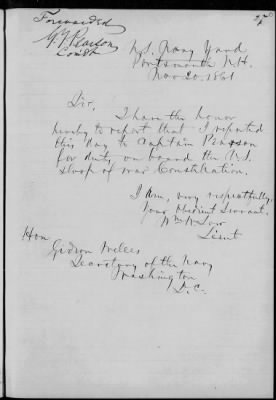 Forwarded
G. F. Pearson
Comdt
U.S. Navy Yard
Portsmouth N.H.
Nov 20. 1861
Sir,
I have the honor
hereby to report that I reported
this day to Captain Pearson
for duty on board the U.S.
sloop of war Constellation.
I am, very respectfully,
Your obedient servant,
Wm W. Low
Lieut
Hon
Gideon Welles
Secretary of the Navy
Washington
D.C.